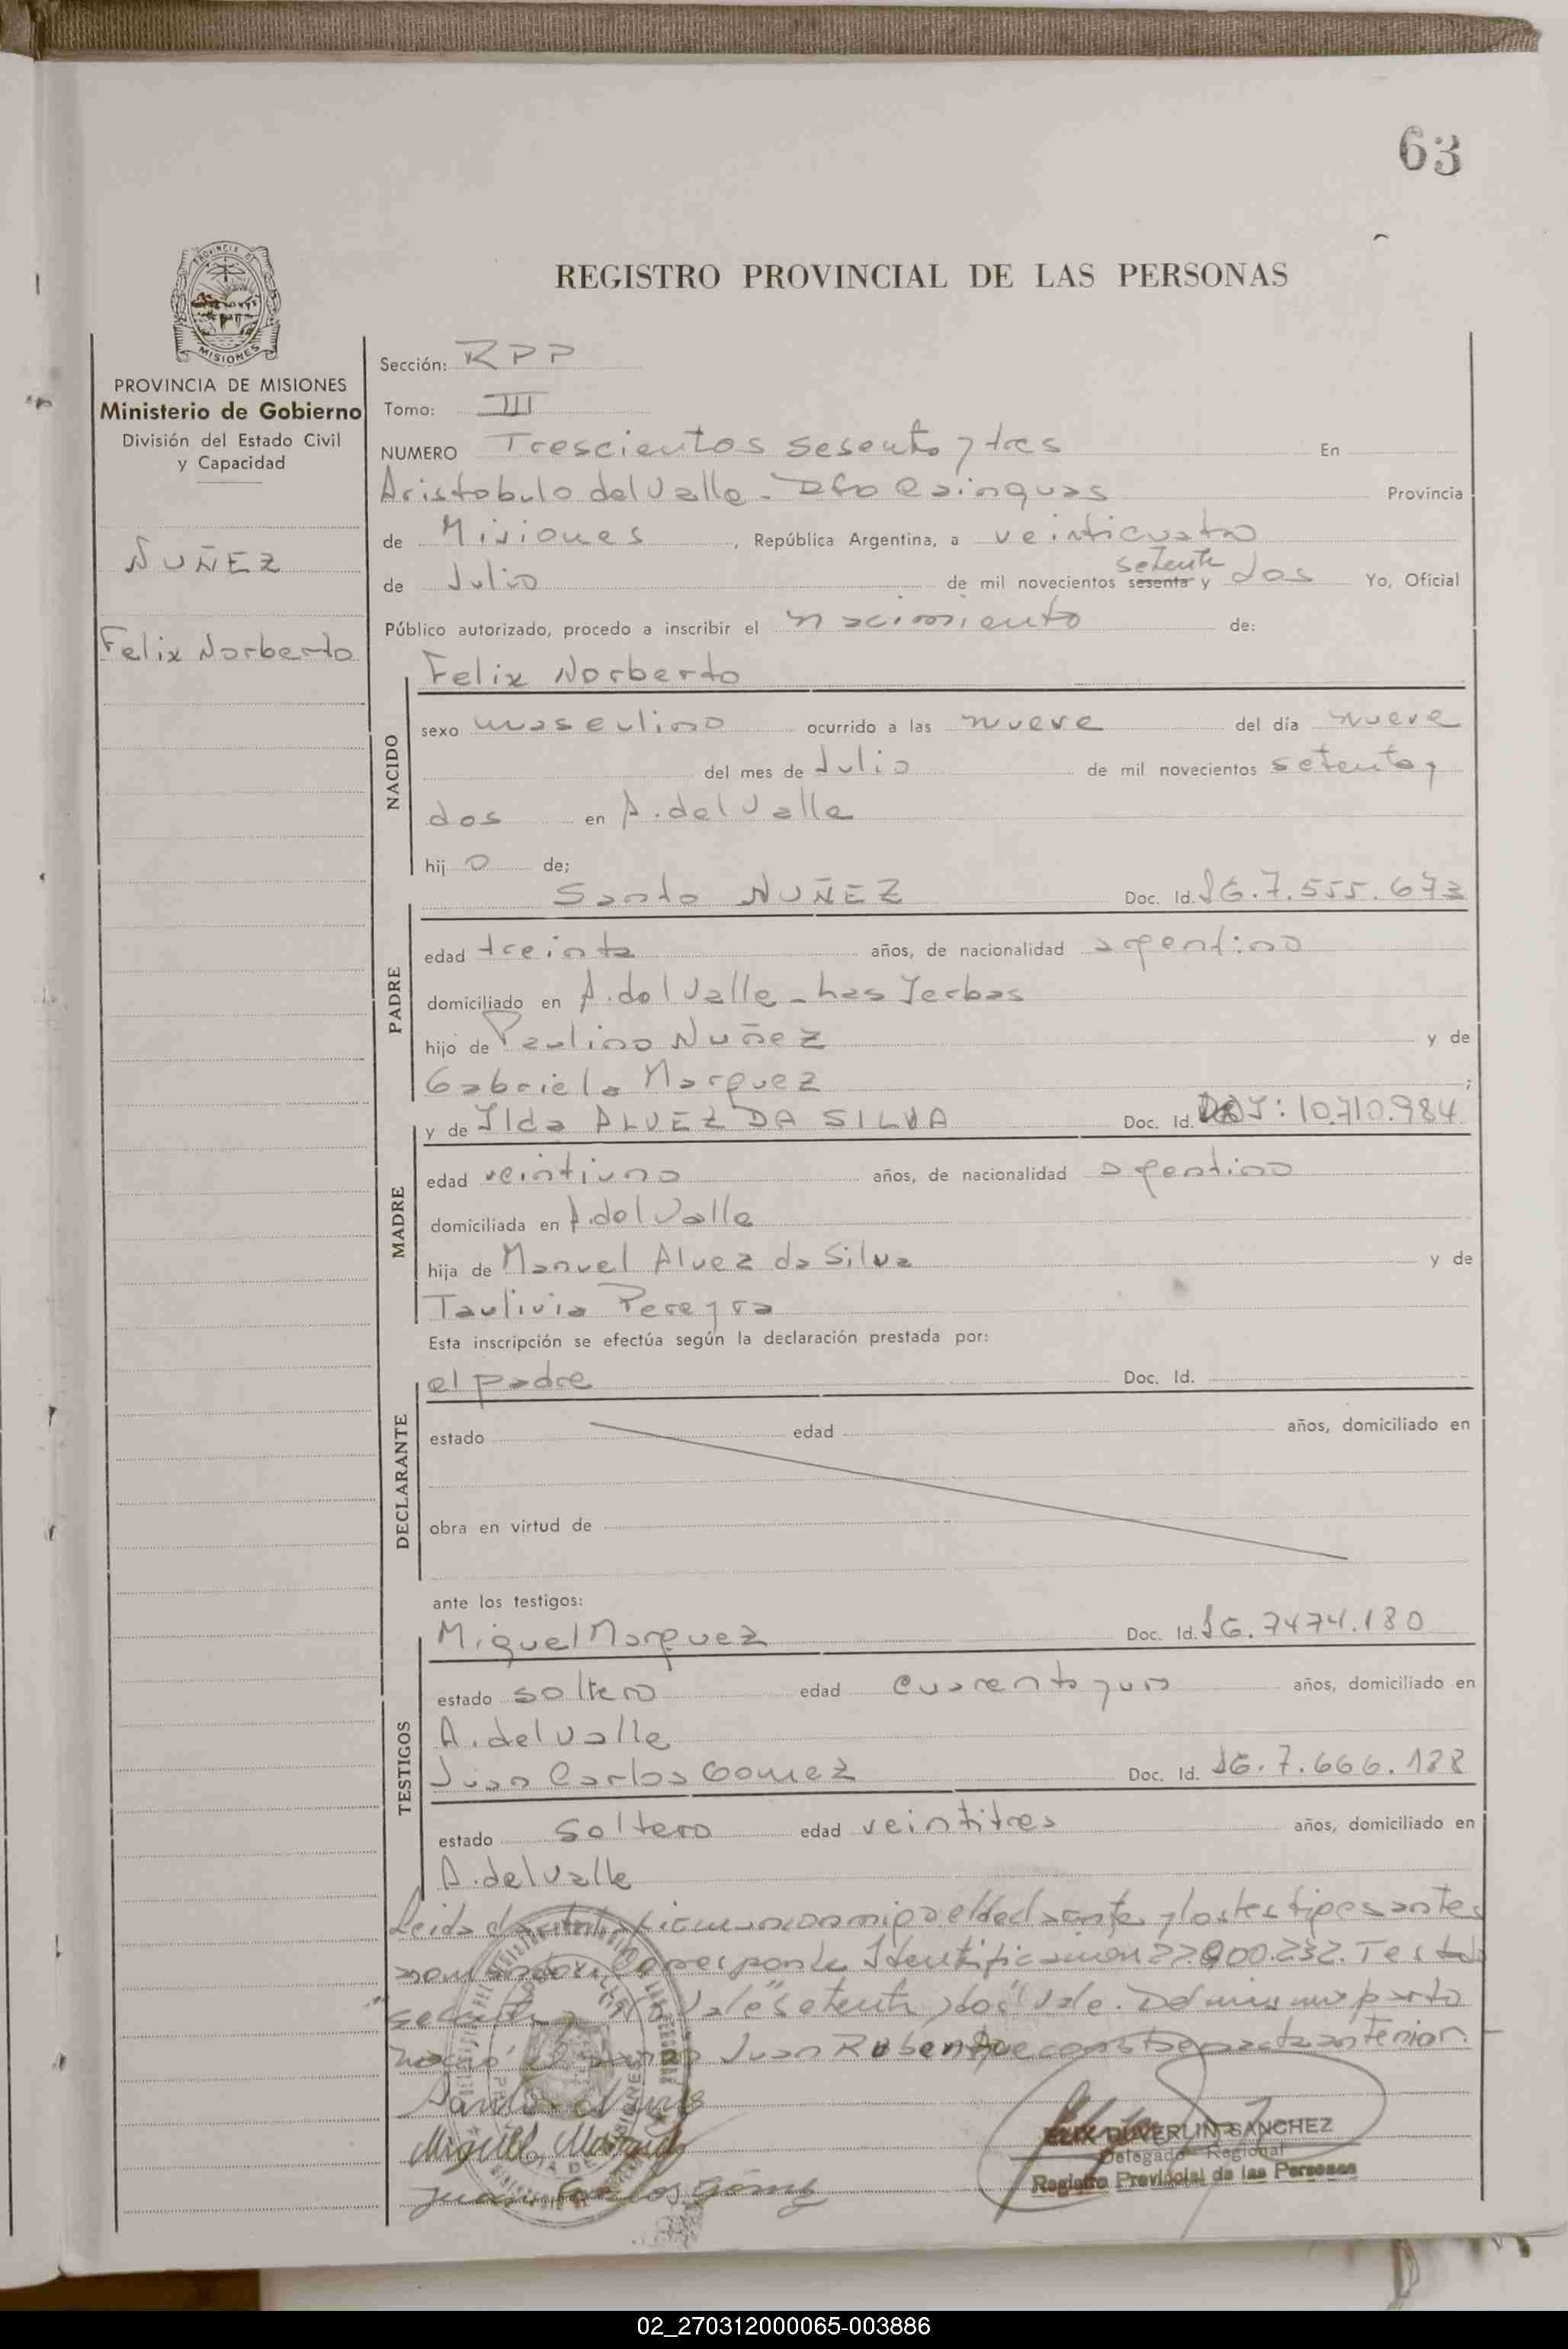 63
REGISTRO PROVINCIAL DE LAS PERSONAS
PROVINCIA DE MISIONES
Ministerio de Gobierno
División del Estado Civil
y Capacidad
NUÑEZ
Felix Norberto
Sección: RPP
Tomo: III
NUMERO Trescientos sesenta y tres En
Aristobulo del Valle - Dto Cainguas Provincia
de Misiones, República Argentina, a veinticuatro
de Julio de mil novecientos sesenta y setenta dos Yo, Oficial
Público autorizado, procedo a inscribir el nacimiento de:
Felix Norberto
NACIDO
sexo masculino ocurrido a las nueve del día nueve
del mes de Julio de mil novecientos setenta y
dos en A. del Valle
hijo de;
PADRE
Santo NUÑEZ Doc. Id. 7.555.673
edad treinta años, de nacionalidad argentino
domiciliado en A. del Valle - Las Yerbas
hijo de Paulino Nuñez y de
Gabriela Marquez;
MADRE
y de Ilda ALVEZ DA SILVA Doc. Id. 10.710.984
edad veintiuno años, de nacionalidad argentino
domiciliada en A. del Valle
hija de Manuel Alvez da Silva y de
Taulivia Pereyra
Esta inscripción se efectúa según la declaración prestada por:
DECLARANTE
el padre Doc. Id.
estado edad años, domiciliado en
obra en virtud de
ante los testigos:
TESTIGOS
Miguel Marquez Doc. Id. 7474.180
estado soltero edad cuarenta y un años, domiciliado en
A. del Valle
Juan Carlos Gomez Doc. Id. 7.666.188
estado soltero edad veintitres años, domiciliado en
A. del Valle
Leida el acta firman conmigo el declarante y los testigos antes
nombrados. Corresponde Identificacion 22.900.232. Testado
"sesenta" Vale "setenta y dos" Vale. Del mismo parto
nacio Juan Ruben que consta en acta anterior.
Santo Nuñez
Miguel Marquez
Juan Carlos Gómez
FELIX DUVERLIN SANCHEZ
Delegado Regional
Registro Provincial de las Personas
02_270312000065-003886